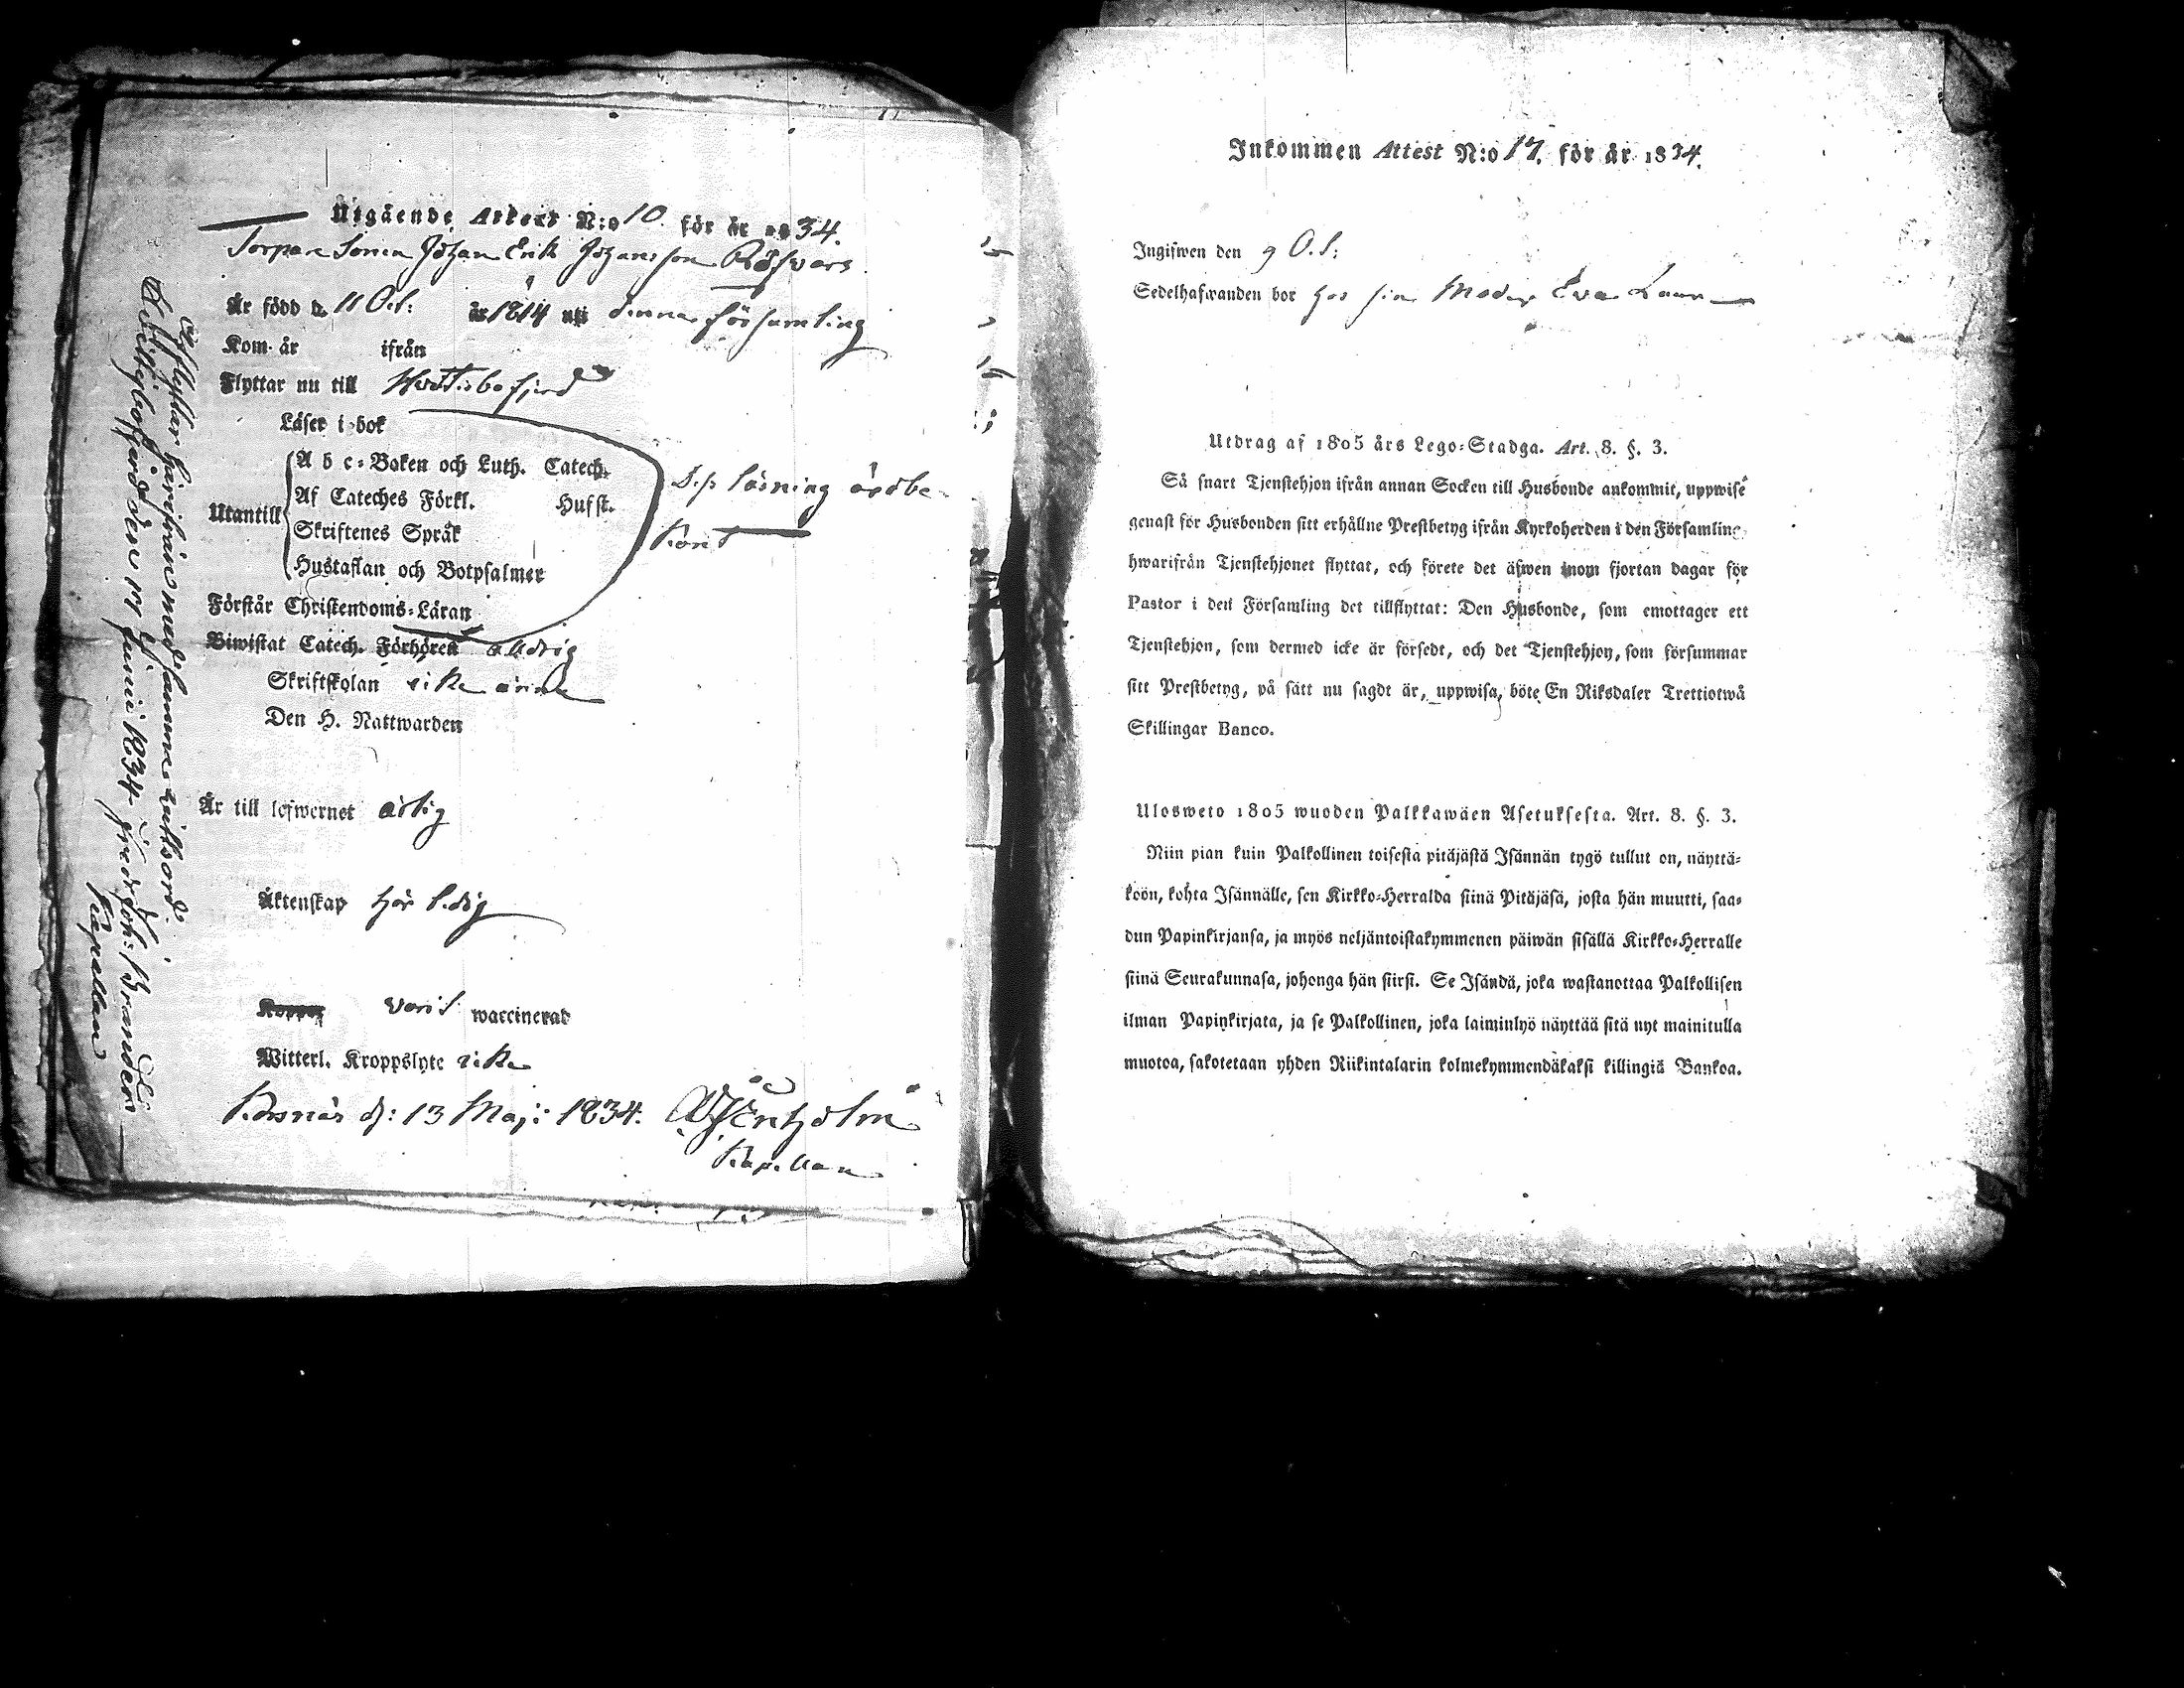 Utgående Attest N:o 10 för år 1834.
Torpare Sonen Johan Erik Johansson Rösvars
Är född d. 11 Oct: år 1814 uti denna församling
Kom år ifrån
Flyttar nu till Hvittisbofjerd
Läser i bok
Utantill
A b c-Boken och Luth. Catech.
Af Cateches Förkl. Husst.
Skriftenes Språk
Hustaflan och Botpsalmer
läsning obe-
kant
Förstår Christendoms-Läran
Biwistat Catech. Förhören aldrig
Skriftskolan icke ännu
Den H. Nattwarden
Är till lefwernet ärlig
Äktenskap för ledig
Koppor varit waccinerad
Witterl. Kroppslyte icke
d: 13 Maji 1834.
Kapellan
Afflyttar härifrån med samma vittsord.
Hvittisbofjerd den 17 Junii 1834. Fredr. Joh: Brandén
Kapellan
Inkommen Attest N:o 17. för år 1834.
Ingifwen den 9 Oct:
Sedelhafwanden bor hos sin Moder Eva
Utdrag af 1805 års Lego-Stadga. Art. 8. §. 3.
Så snart Tjenstehjon ifrån annan Socken till Husbonde ankommit, uppwise
genast för Husbonden sitt erhållne Prestbetyg ifrån Kyrkoherden i den Församling
hwarifrån Tjenstehjonet flyttat, och förete det äfwen inom fjortan dagar för
Pastor i den Församling det tillflyttat: Den Husbonde, som emottager ett
Tjenstehjon, som dermed icke är försedt, och det Tjenstehjon, som försummar
sitt Prestbetyg, på sätt nu sagdt är, uppwisa, böte En Riksdaler Trettiotwå
Skillingar Banco.
Ulosweto 1805 wuoden Palkkawäen Asetuksesta. Art. 8. §. 3.
Niin pian kuin Palkollinen toisesta pitäjästä Isännän tygö tullut on, näyttä-
köön, kohta Isännälle, sen Kirkko-Herralda siinä Pitäjäsä, josta hän muutti, saa-
dun Papinkirjansa, ja myös neljäntoistakymmenen päiwän sisällä Kirkko-Herralle
siinä Seurakunnasa, johonga hän siirsi. Se Isändä, joka wastanottaa Palkollisen
ilman Papinkirjata, ja se Palkollinen, joka laiminlyö näyttää sitä nyt mainitulla
muotoa, sakotetaan yhden Riikintalarin kolmekymmendäkaksi killingiä Bankoa.